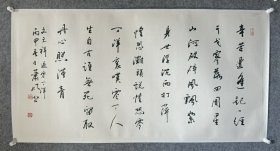 辛苦遭逢起一經
干戈寥落四周星
山河破碎風飄絮
身世浮沉雨打萍
惶恐灘頭說惶恐零
丁洋裏嘆零丁人
生自古誰無死留取
丹心照汗青
文天祥過零丁洋
丙申